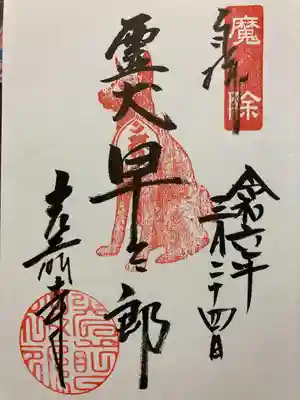 魔除
奉拝
令和六年
三月二十四日
霊犬早太郎
光前寺